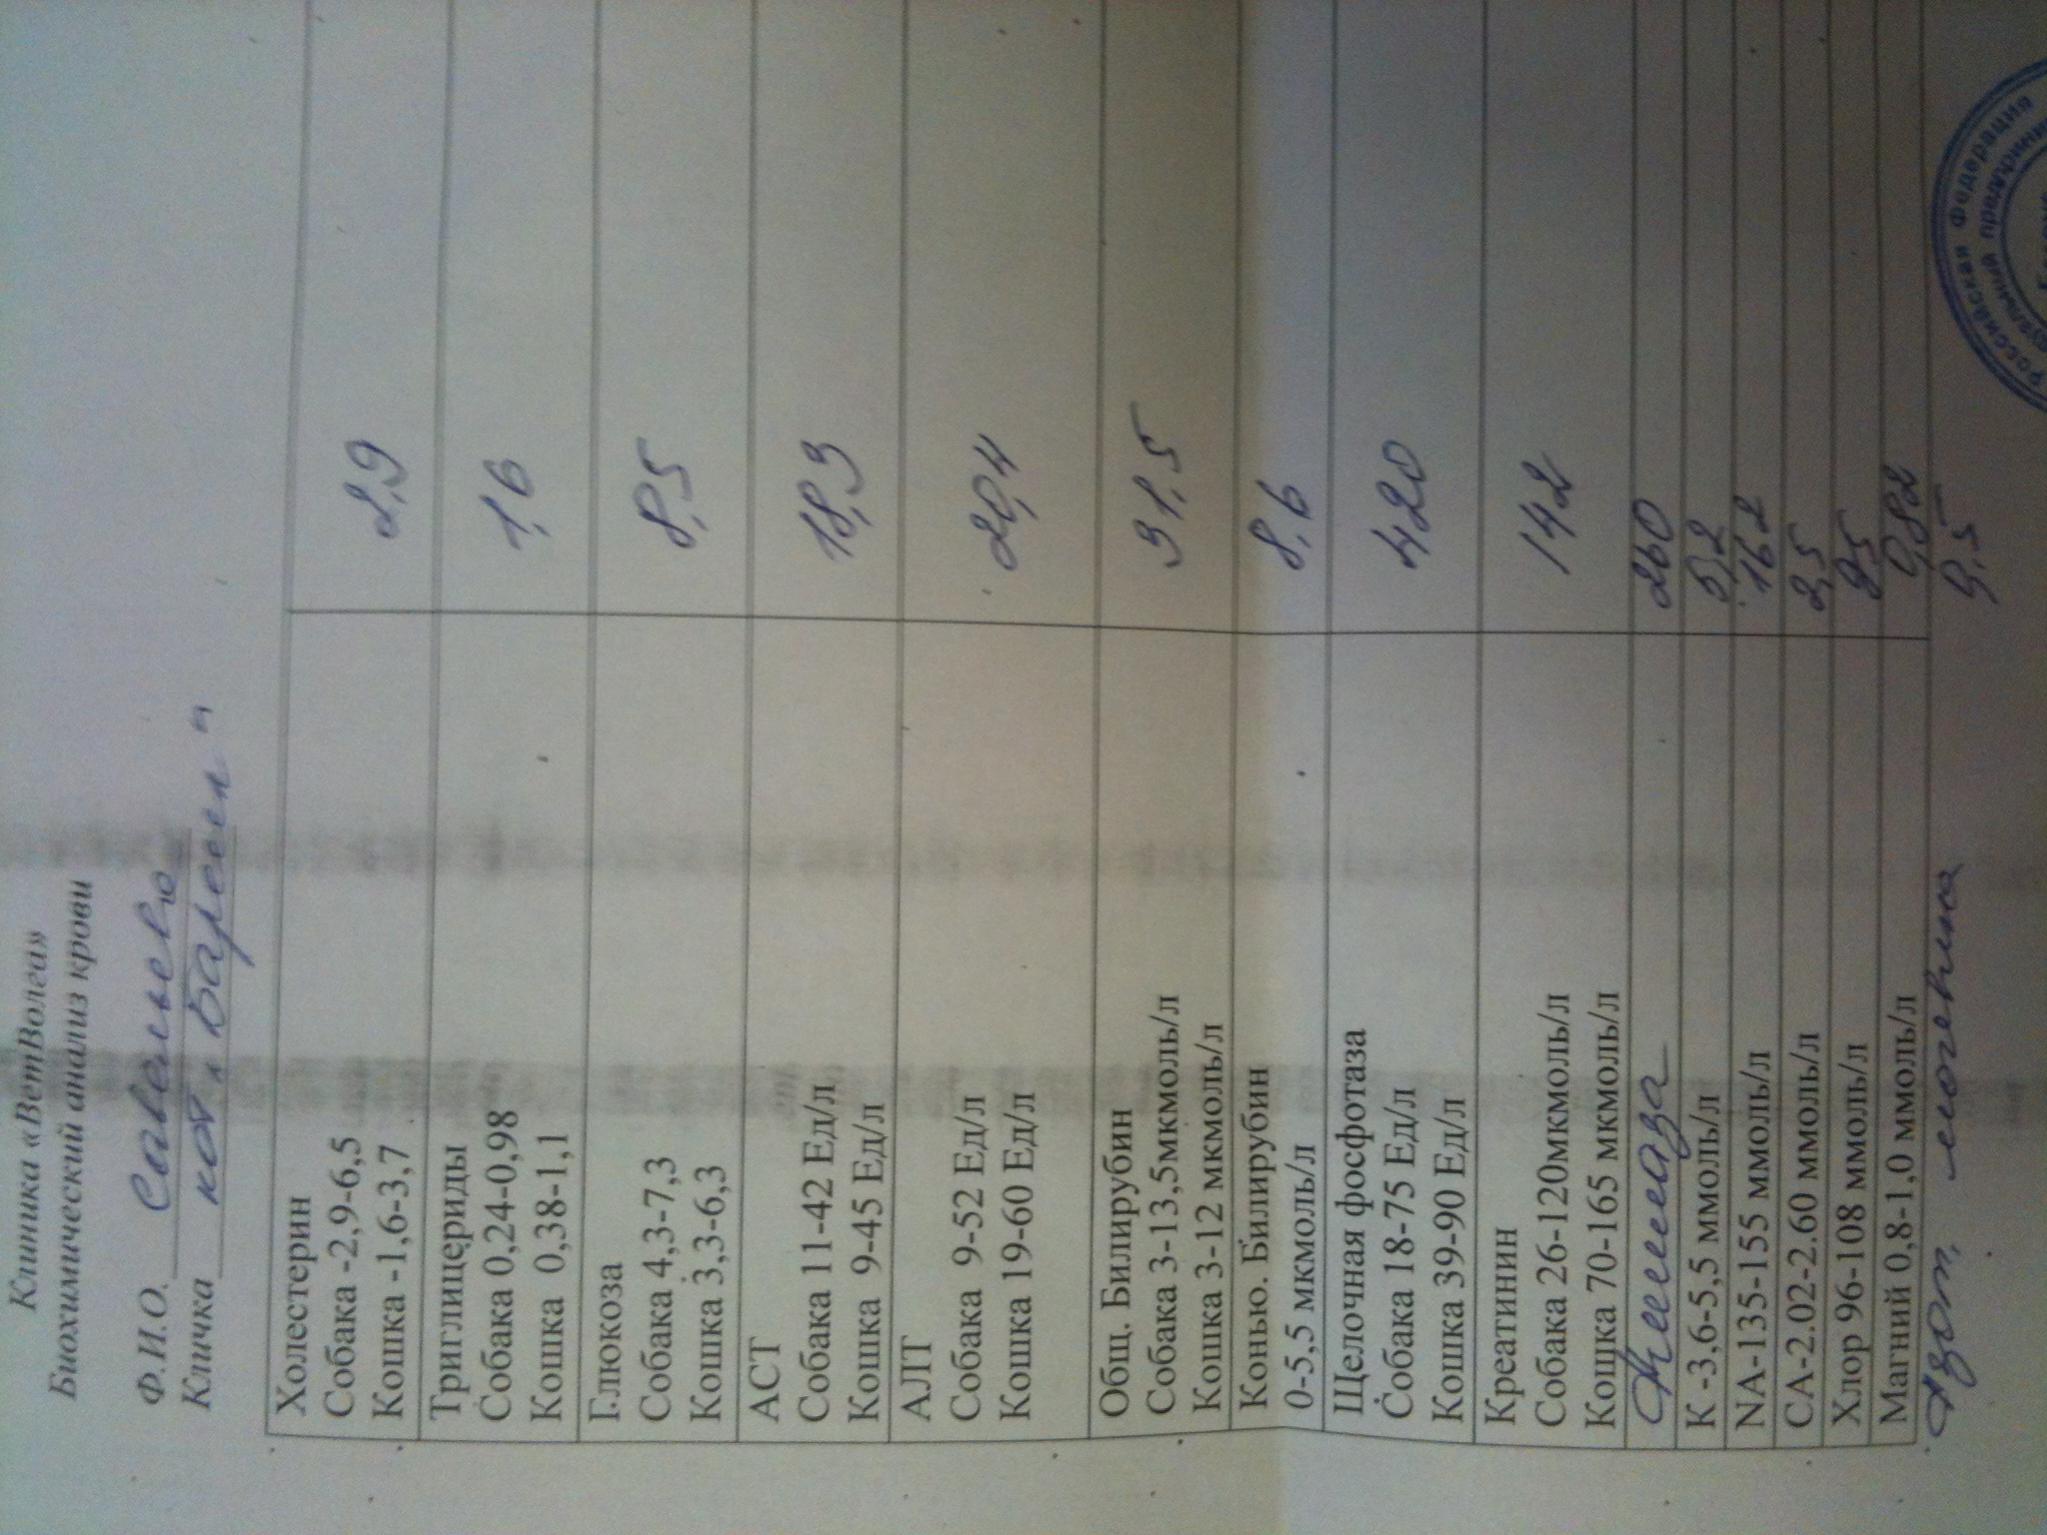 Клиника «ВетВолга»
Биохимический анализ крови
Ф.И.О. Савельево
Кличка кот „Барсик"
Холестерин
Собака -2,9-6,5
Кошка -1,6-3,7
2,9
Триглицериды
Собака 0,24-0,98
Кошка 0,38-1,1
1,6
Глюкоза
Собака 4,3-7,3
Кошка 3,3-6,3
8,5
АСТ
Собака 11-42 Ед/л
Кошка 9-45 Ед/л
18,9
АЛТ
Собака 9-52 Ед/л
Кошка 19-60 Ед/л
20,4
Общ. Билирубин
Собака 3-13,5мкмоль/л
Кошка 3-12 мкмоль/л
31,5
Конью. Билирубин
0-5,5 мкмоль/л
8,6
Щелочная фосфотаза
Собака 18-75 Ед/л
Кошка 39-90 Ед/л
420
Креатинин
Собака 26-120мкмоль/л
Кошка 70-165 мкмоль/л
142
Амилаза 260
К -3,6-5,5 ммоль/л 5,2
NA-135-155 ммоль/л 162
CA-2.02-2.60 ммоль/л 2,5
Хлор 96-108 ммоль/л 95
Магний 0,8-1,0 ммоль/л 0,82
Азот. мочевина 9,5
Российская Федерация